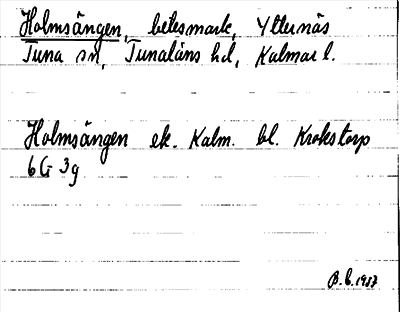 Holmsängen, betesmark, Ytternäs
Tuna sn, Tunaläns hd, Kalmar l.
Holmsängen ek. Kalm. bl. Krokstorp
6G 3g
B.C. 1937